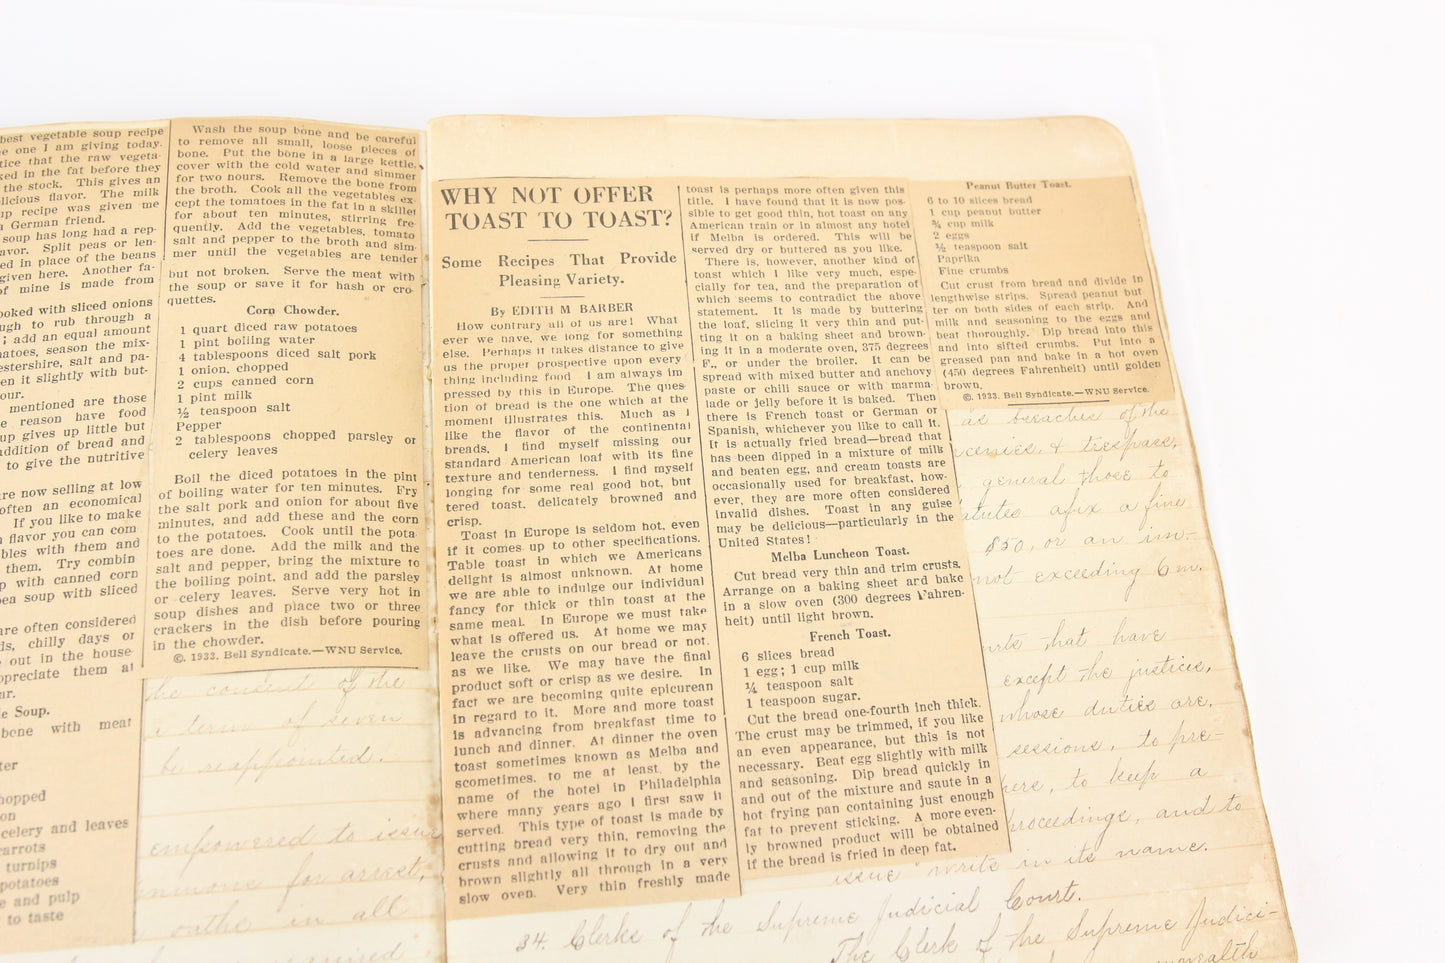 best vegetable soup recipe
e one I am giving today.
tice that the raw vegeta-
ked in the fat before they
the stock. This gives an
licious flavor. The milk
up recipe was given me
German friend.
soup has long had a rep-
avor. Split peas or len-
ed in place of the beans
given here. Another fa-
of mine is made from
ooked with sliced onions
ugh to rub through a
; add an equal amount
atoes, season the mix-
estershire, salt and pa-
en it slightly with but-
our.
mentioned are those
e reason have food
up gives up little but
addition of bread and
to give the nutritive
re now selling at low
often an economical
If you like to make
flavor you can com
bles with them and
them. Try combin
p with canned corn
ea soup with sliced
are often considered
ds, chilly days or
out in the house-
ppreciate them at
ar.
le Soup.
bone with meat
ter
hopped
on
celery and leaves
carrots
turnips
potatoes
e and pulp
to taste
Wash the soup bone and be careful
to remove all small, loose pieces of
bone. Put the bone in a large kettle,
cover with the cold water and simmer
for two hours. Remove the bone from
the broth. Cook all the vegetables ex-
cept the tomatoes in the fat in a skillet
for about ten minutes, stirring fre-
quently. Add the vegetables, tomato
salt and pepper to the broth and sim-
mer until the vegetables are tender
but not broken. Serve the meat with
the soup or save it for hash or cro-
quettes.
Corn Chowder.
1 quart diced raw potatoes
1 pint boiling water
4 tablespoons diced salt pork
1 onion, chopped
2 cups canned corn
1 pint milk
½ teaspoon salt
Pepper
2 tablespoons chopped parsley or
celery leaves
Boil the diced potatoes in the pint
of boiling water for ten minutes. Fry
the salt pork and onion for about five
minutes, and add these and the corn
to the potatoes. Cook until the pota-
toes are done. Add the milk and the
salt and pepper, bring the mixture to
the boiling point, and add the parsley
or celery leaves. Serve very hot in
soup dishes and place two or three
crackers in the dish before pouring
in the chowder.
©. 1933. Bell Syndicate.—WNU Service.
the consent of the
a term of seven
be reappointed.
empowered to issue
for arrest,
oaths in all
WHY NOT OFFER
TOAST TO TOAST?
Some Recipes That Provide
Pleasing Variety.
By EDITH M BARBER
How contrary all of us are! What
ever we have, we long for something
else. Perhaps it takes distance to give
us the proper prospective upon every
thing including food I am always im
pressed by this in Europe. The ques-
tion of bread is the one which at the
moment illustrates this. Much as I
like the flavor of the continental
breads, I find myself missing our
standard American loaf with its fine
texture and tenderness. I find myself
longing for some real good hot, but
tered toast, delicately browned and
crisp.
Toast in Europe is seldom hot, even
if it comes up to other specifications.
Table toast in which we Americans
delight is almost unknown. At home
we are able to indulge our individual
fancy for thick or thin toast at the
same meal. In Europe we must take
what is offered us. At home we may
leave the crusts on our bread or not,
as we like. We may have the final
product soft or crisp as we desire. In
fact we are becoming quite epicurean
in regard to it. More and more toast
is advancing from breakfast time to
lunch and dinner. At dinner the oven
toast sometimes known as Melba and
scometimes, to me at least, by the
name of the hotel in Philadelphia
where many years ago I first saw it
served. This type of toast is made by
cutting bread very thin, removing the
crusts and allowing it to dry out and
brown slightly all through in a very
slow oven. Very thin freshly made
toast is perhaps more often given this
title. I have found that it is now pos-
sible to get good thin, hot toast on any
American train or in almost any hotel
if Melba is ordered. This will be
served dry or buttered as you like.
There is, however, another kind of
toast which I like very much, espe-
cially for tea, and the preparation of
which seems to contradict the above
statement. It is made by buttering
the loaf, slicing it very thin and put-
ting it on a baking sheet and brown-
ing it in a moderate oven, 375 degrees
F., or under the broiler. It can be
spread with mixed butter and anchovy
paste or chili sauce or with marma-
lade or jelly before it is baked. Then
there is French toast or German or
Spanish, whichever you like to call it.
It is actually fried bread—bread that
has been dipped in a mixture of milk
and beaten egg, and cream toasts are
occasionally used for breakfast, how-
ever, they are more often considered
invalid dishes. Toast in any guise
may be delicious—particularly in the
United States!
Melba Luncheon Toast.
Cut bread very thin and trim crusts.
Arrange on a baking sheet and bake
in a slow oven (300 degrees Fahren-
heit) until light brown.
French Toast.
6 slices bread
1 egg; 1 cup milk
¼ teaspoon salt
1 teaspoon sugar.
Cut the bread one-fourth inch thick.
The crust may be trimmed, if you like
an even appearance, but this is not
necessary. Beat egg slightly with milk
and seasoning. Dip bread quickly in
and out of the mixture and saute in a
hot frying pan containing just enough
fat to prevent sticking. A more even-
ly browned product will be obtained
if the bread is fried in deep fat.
Peanut Butter Toast.
6 to 10 slices bread
1 cup peanut butter
¾ cup milk
2 eggs
½ teaspoon salt
Paprika
Fine crumbs
Cut crust from bread and divide in
lengthwise strips. Spread peanut but
ter on both sides of each strip. And
milk and seasoning to the eggs and
beat thoroughly. Dip bread into this
and into sifted crumbs. Put into a
greased pan and bake in a hot oven
(450 degrees Fahrenheit) until golden
brown.
©. 1933. Bell Syndicate.—WNU Service.
as breaches of the
& trespass,
general those to
afix a fine
$50, or an im-
not exceeding 6 m.
that have
except the justices,
whose duties are,
sessions, to pre-
to keep a
proceedings, and to
issue writs in its name.
34. Clerks of the Supreme Judicial Court.
The Clerk of the Supreme Judici-